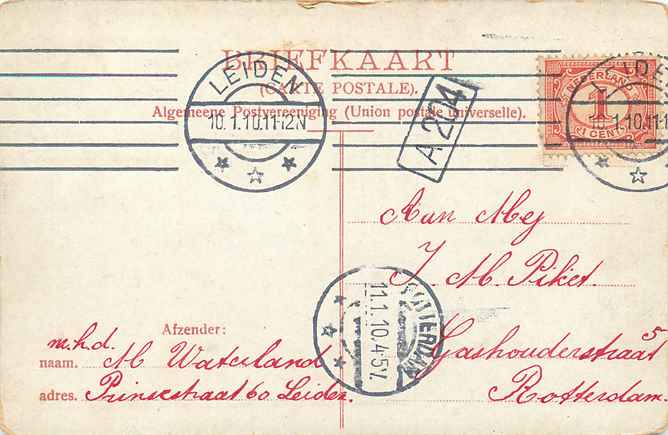 BRIEFKAART
(CARTE POSTALE).
Algemeene Postvereeniging (Union postale universelle).
LEIDEN
10.1.10.11-12N
A 204
NEDERLAND
1
CENT
10.1.10.11-1
Aan Mej
J. M. Piket.
Gashouderstraat 5
Rotterdam.
ROTTERDAM
11.1.10.4-5V.
Afzender:
m.h.d.
naam. M Waterland
adres. Prinsestraat 60 Leiden.